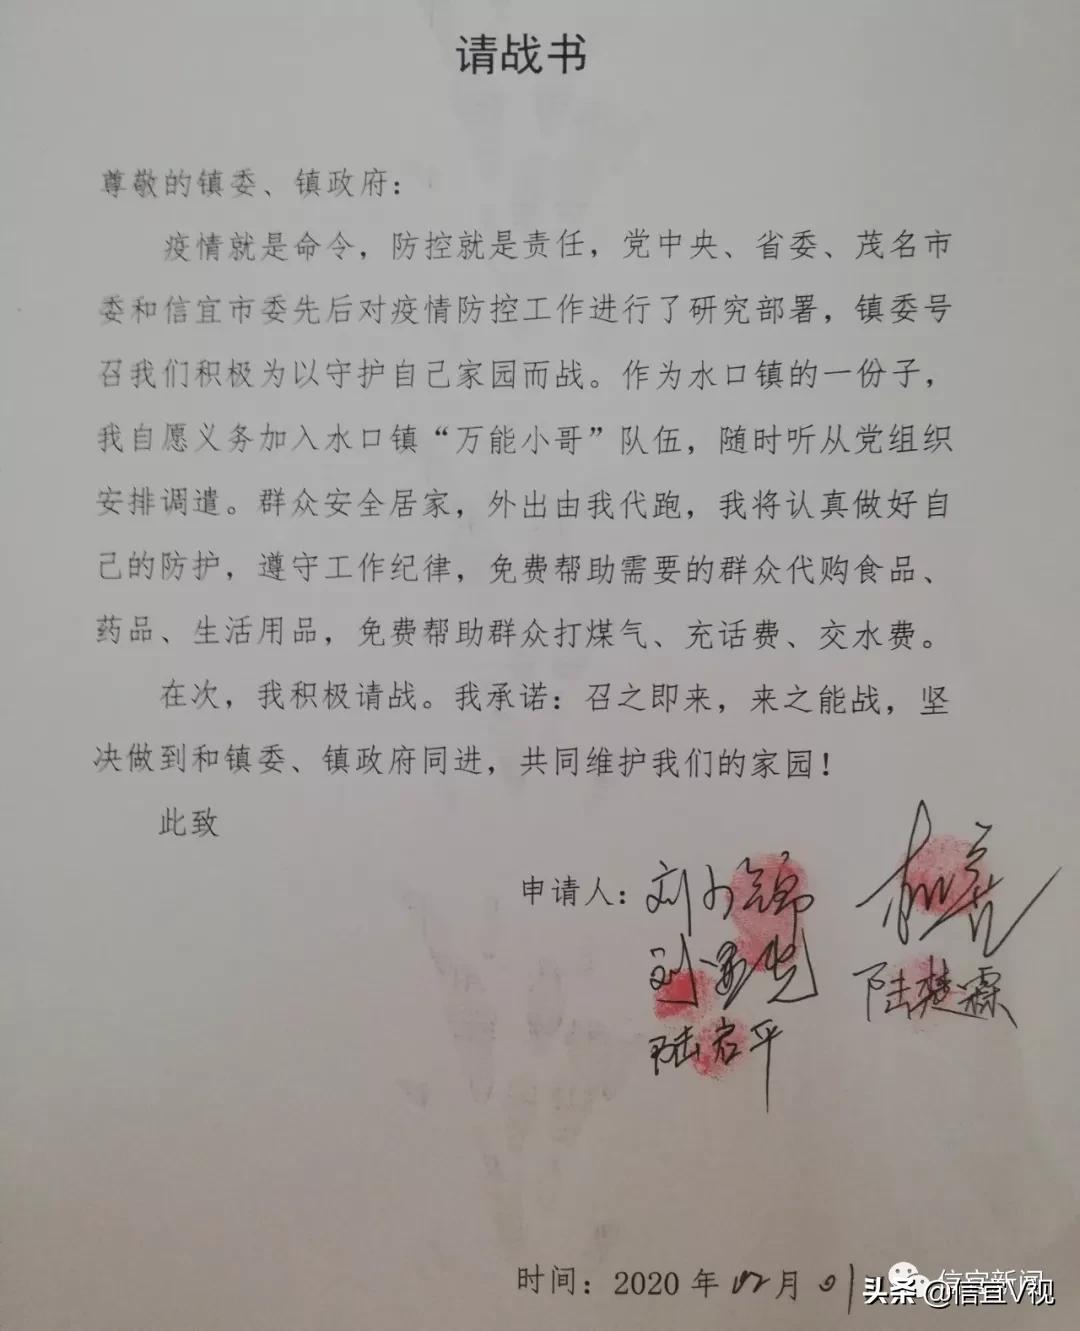 请战书
尊敬的镇委、镇政府：
疫情就是命令，防控就是责任，党中央、省委、茂名市
委和信宜市委先后对疫情防控工作进行了研究部署，镇委号
召我们积极为以守护自己家园而战。作为水口镇的一份子，
我自愿义务加入水口镇“万能小哥”队伍，随时听从党组织
安排调遣。群众安全居家，外出由我代跑，我将认真做好自
己的防护，遵守工作纪律，免费帮助需要的群众代购食品、
药品、生活用品，免费帮助群众打煤气、充话费、交水费。
在次，我积极请战。我承诺：召之即来，来之能战，坚
决做到和镇委、镇政府同进，共同维护我们的家园！
此致
申请人：刘
刘
陆楚霖
陆启平
时间：2020 年 02 月 01
信宜新闻
头条 @信宜V视